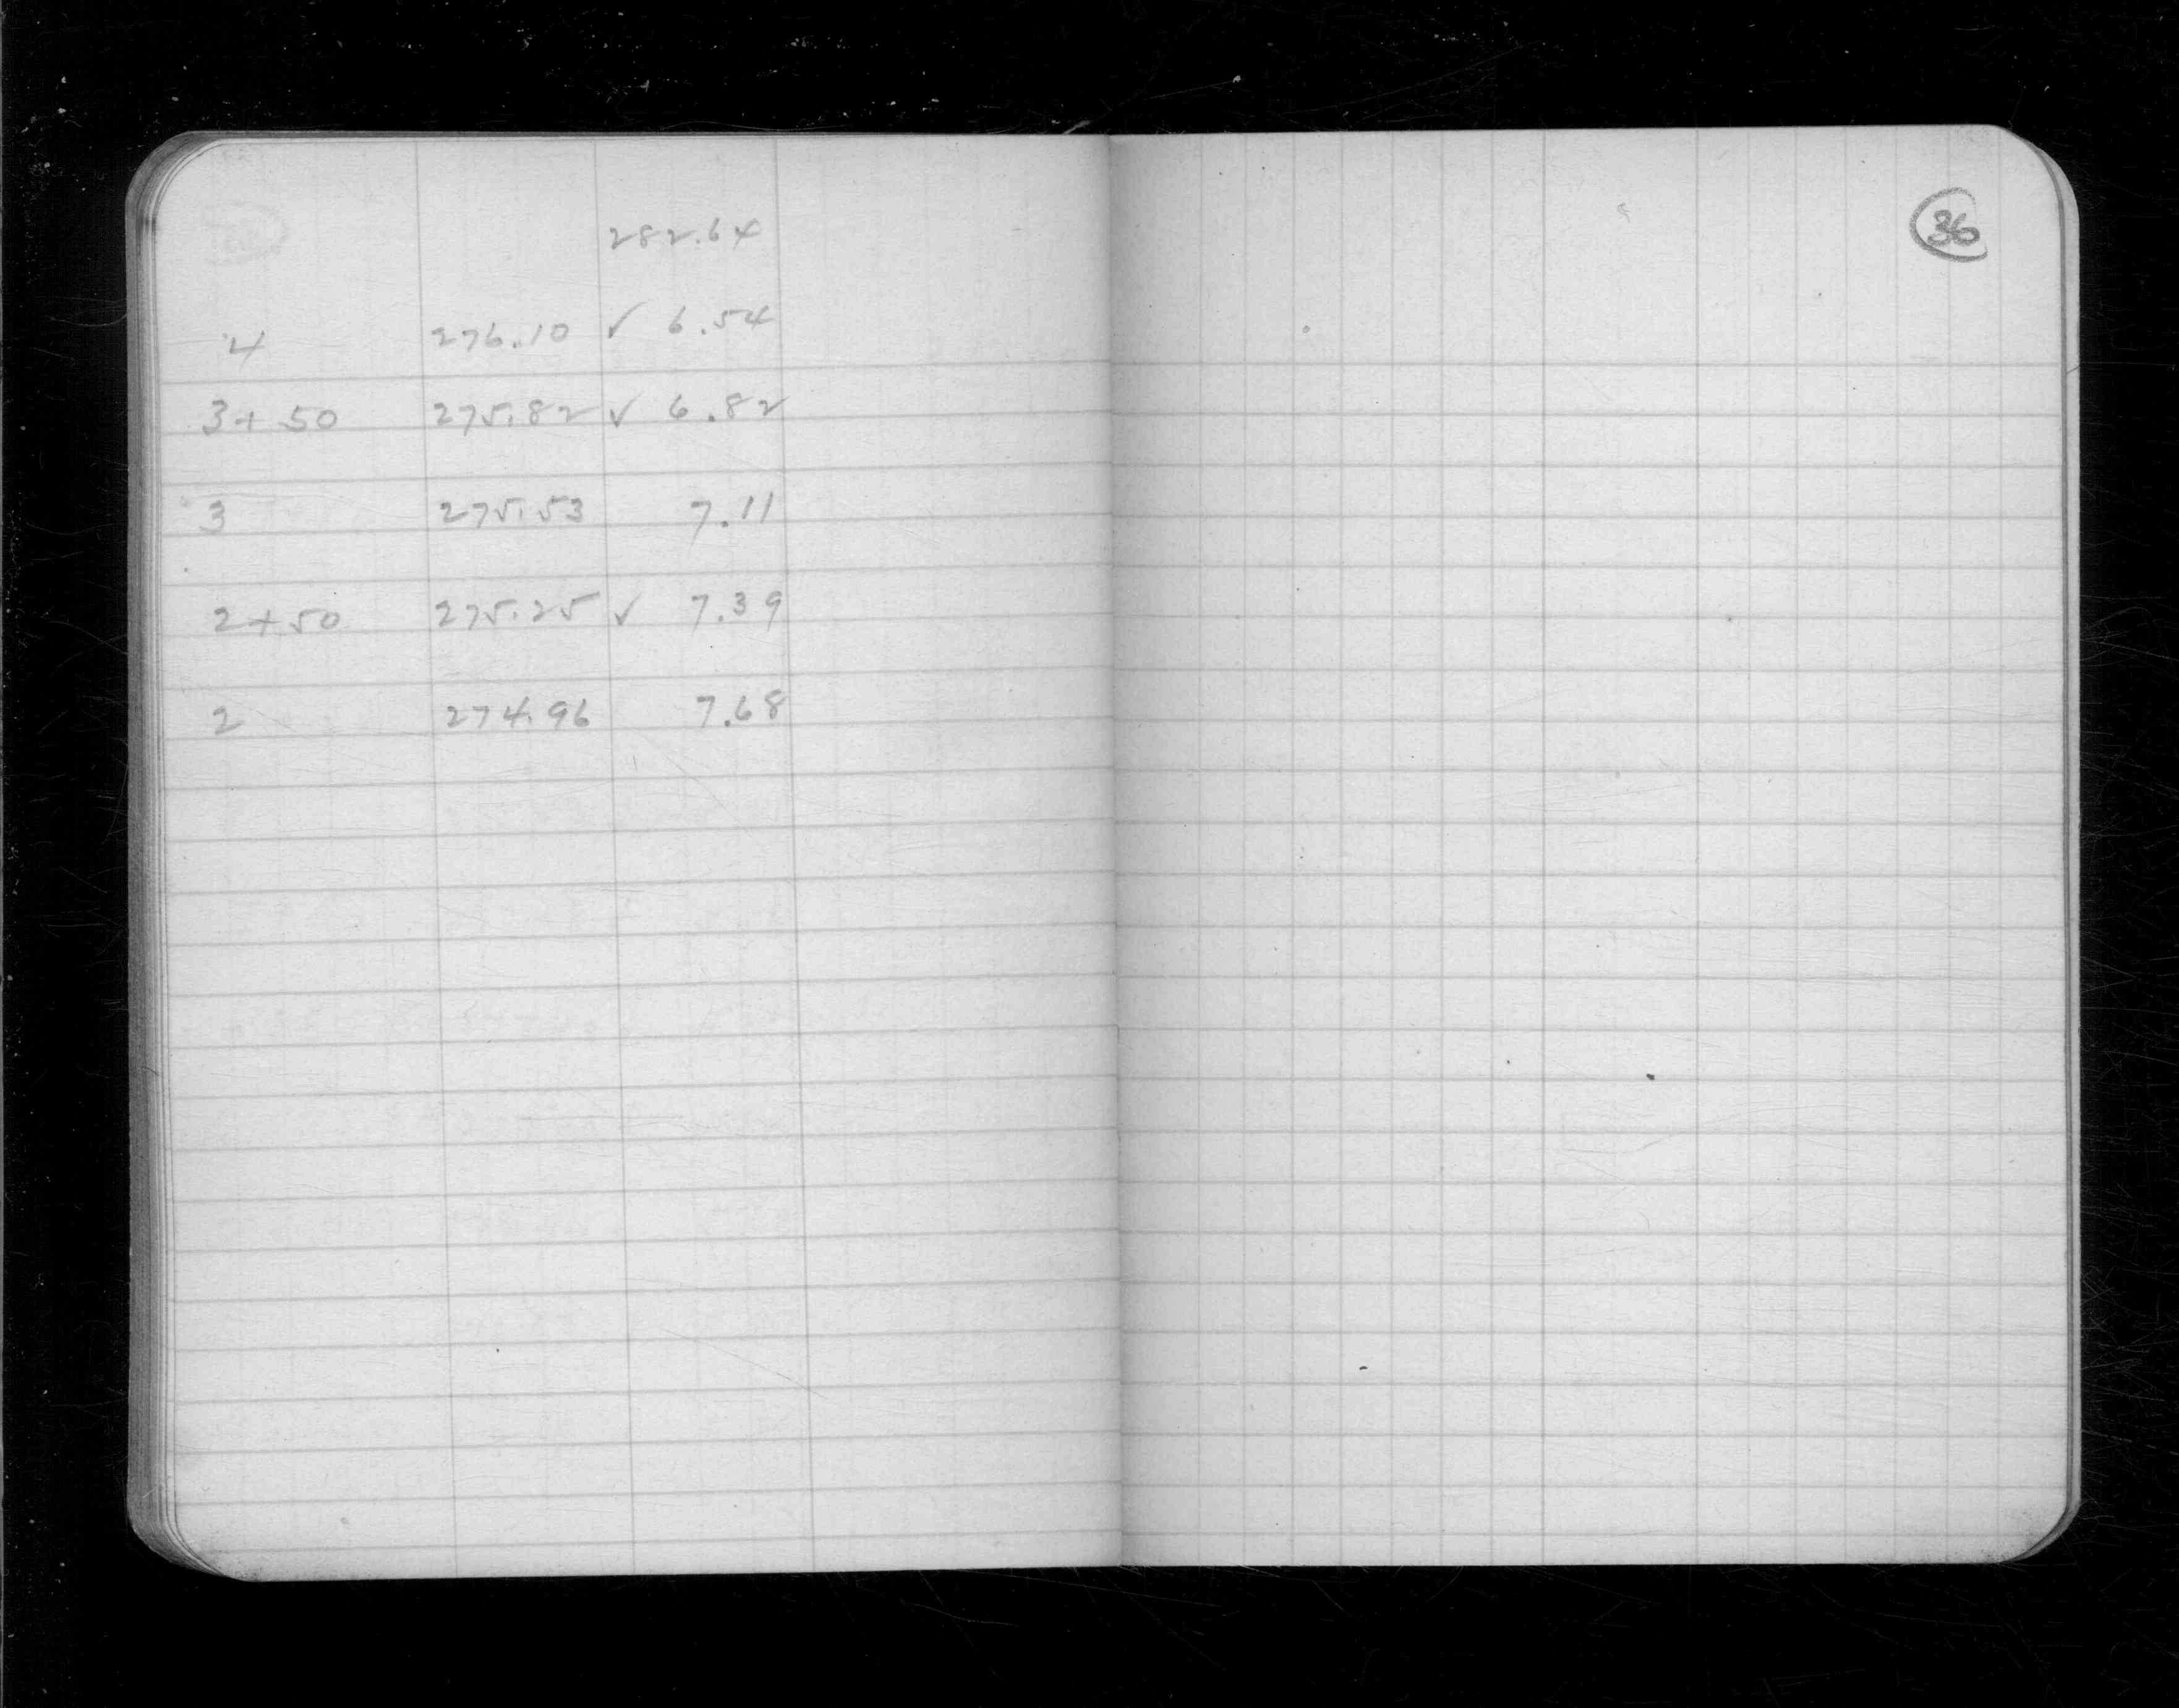 282.64
4 276.10 ✓ 6.54
3+50 275.82 ✓ 6.82
3 275.53 7.11
2+50 275.25 ✓ 7.39
2 274.96 7.68
36